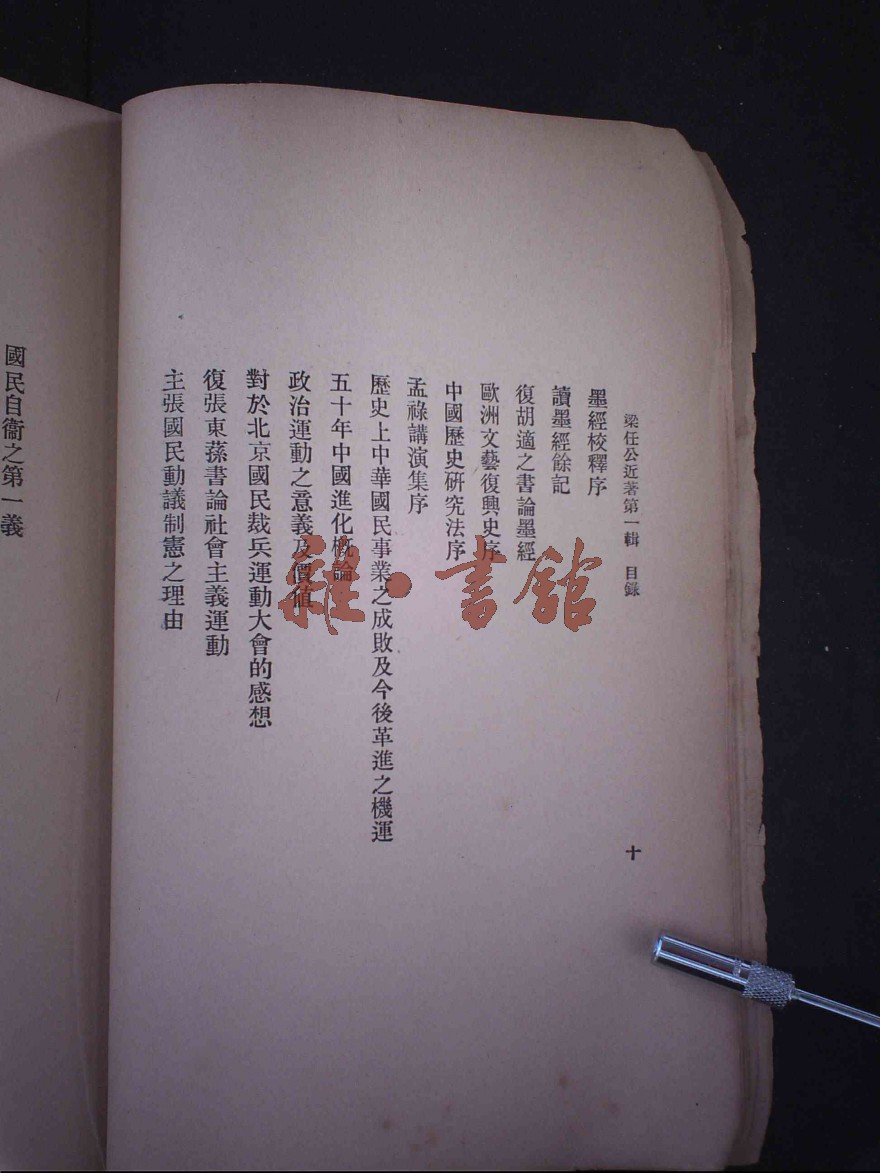 梁任公近著第一輯　目錄
十
墨經校釋序
讀墨經餘記
復胡適之書論墨經
歐洲文藝復興史序
中國歷史研究法序
孟祿講演集序
歷史上中華國民事業之成敗及今後革進之機運
五十年中國進化概論
政治運動之意義及價值
對於北京國民裁兵運動大會的感想
復張東蓀書論社會主義運動
主張國民動議制憲之理由
國民自衞之第一義
雜·書館